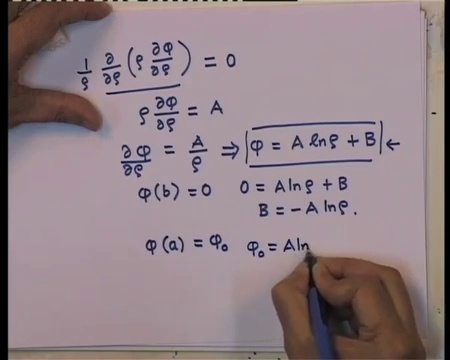 1/ρ ∂/∂ρ (ρ ∂φ/∂ρ) = 0
ρ ∂φ/∂ρ = A
∂φ/∂ρ = A/ρ ⇒ φ = A lnρ + B ←
φ(b) = 0 0 = A lnρ + B
B = -A lnρ.
φ(a) = φ₀ φ₀ = A ln